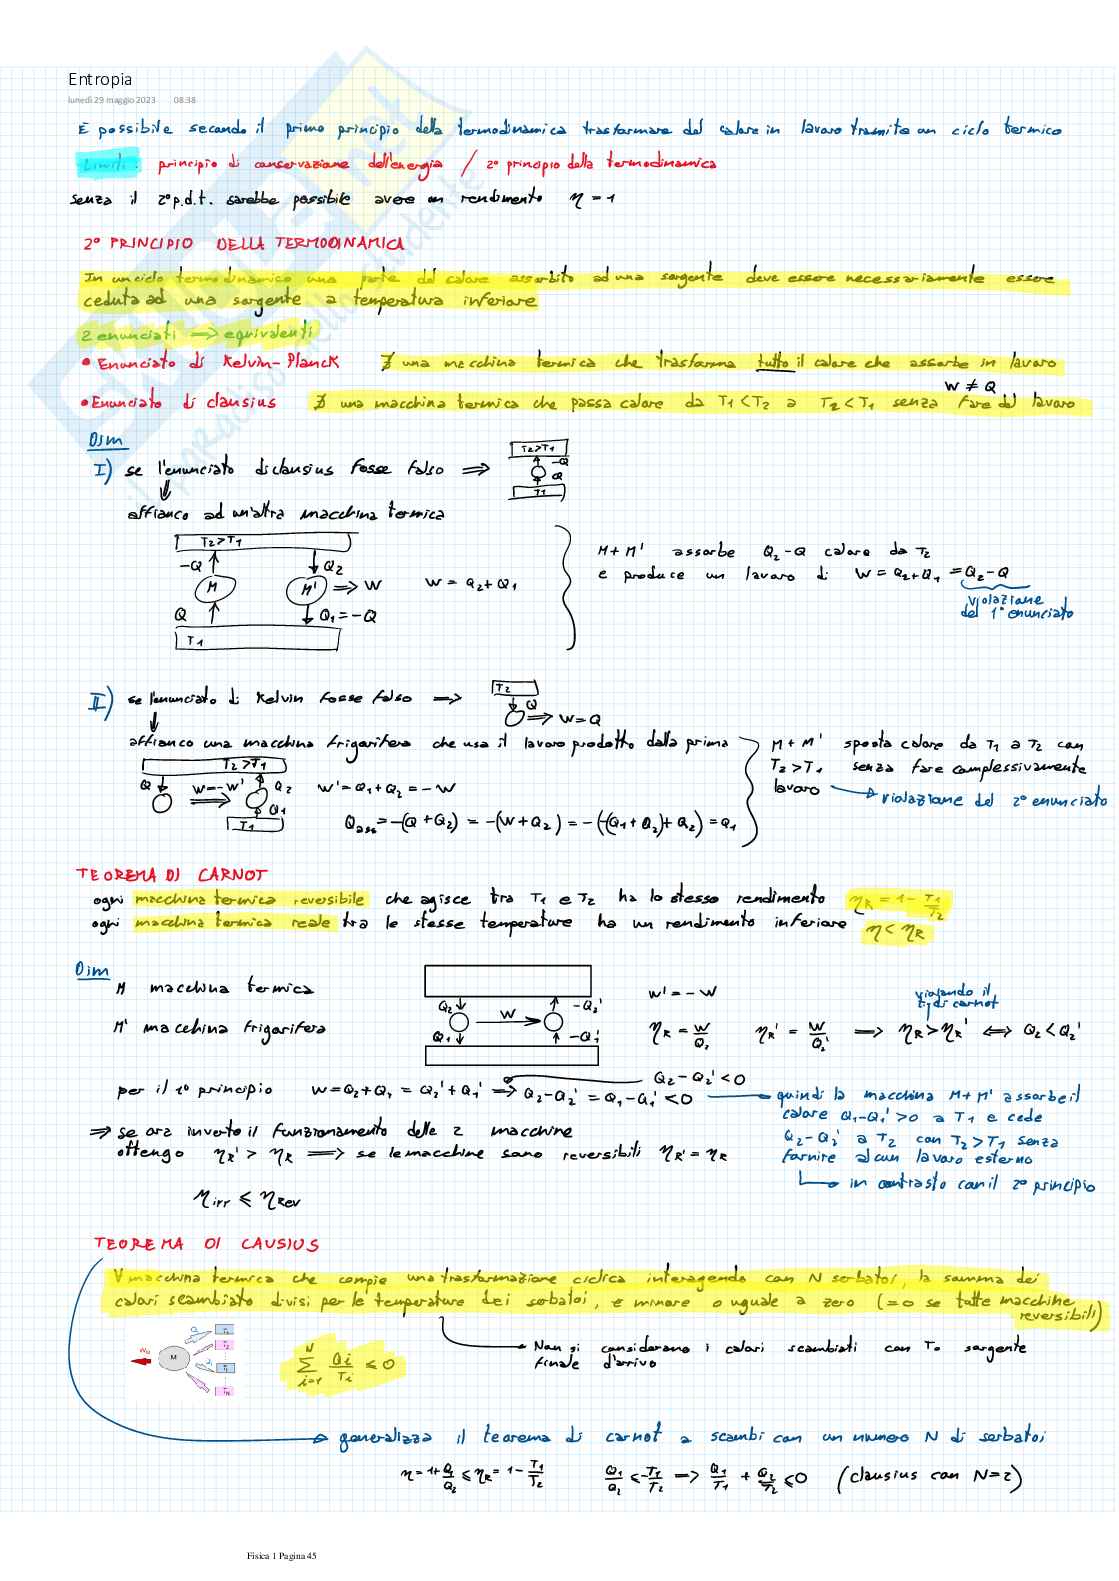 Entropia
lunedì 29 maggio 2023 08:38
È possibile secondo il primo principio della termodinamica trasformare del calore in lavoro tramite un ciclo termico
Limiti: principio di conservazione dell'energia / 2° principio della termodinamica
senza il 2° p.d.t. sarebbe possibile avere un rendimento η = 1
2° PRINCIPIO DELLA TERMODINAMICA
In un ciclo termodinamico una parte del calore assorbito ad una sorgente deve essere necessariamente essere
ceduta ad una sorgente a temperatura inferiore
2 enunciati → equivalenti
• Enunciato di Kelvin-Planck ∄ una macchina termica che trasforma tutto il calore che assorbe in lavoro
W ≠ Q
• Enunciato di clausius ∄ una macchina termica che passa calore da T1<T2 a T2<T1 senza fare del lavoro
Dim
I) se l'enunciato di clausius fosse falso ⇒
T2>T1
-Q
Q
T1
affianco ad un'altra macchina termica
T2>T1
-Q Q2
M M' ⇒ W W = Q2+Q1
Q Q1=-Q
T1
M+M' assorbe Q2-Q calore da T2
e produce un lavoro di W = Q2+Q1 = Q2-Q
violazione
del 1° enunciato
II) se l'enunciato di Kelvin fosse falso ⇒
T2
Q
⇒ W=Q
affianco una macchina frigorifera che usa il lavoro prodotto dalla prima
T2>T1
Q W=-W' Q2 W'=Q1+Q2=-W
Q1
T1
Qass=-(Q+Q2) = -(W+Q2) = -(-(Q1+Q2)+Q2) = Q1
M+M' sposta calore da T1 a T2 con
T2>T1 senza fare complessivamente
lavoro → violazione del 2° enunciato
TEOREMA DI CARNOT
ogni macchina termica reversibile che agisce tra T1 e T2 ha lo stesso rendimento ηR = 1 - T1/T2
ogni macchina termica reale tra le stesse temperature ha un rendimento inferiore η < ηR
Dim
M macchina termica
M' macchina frigorifera
Q2 -Q2'
W
Q1 -Q1'
W' = -W
violando il
t. di carnot
ηR = W/Q2 ηR' = W/Q2' ⇒ ηR > ηR' ⇔ Q2 < Q2'
Q2-Q2'<0
per il 1° principio W=Q2+Q1 = Q2'+Q1' ⇒ Q2-Q2' = Q1-Q1' < 0
quindi la macchina M+M' assorbe il
calore Q1-Q1'>0 a T1 e cede
Q2-Q2' a T2 con T2>T1 senza
fornire alcun lavoro esterno
in contrasto con il 2° principio
⇒ se ora inverto il funzionamento delle 2 macchine
ottengo ηR' > ηR ⇒ se le macchine sono reversibili ηR' = ηR
ηirr ≤ ηRev
TEOREMA DI CAUSIUS
∀ macchina termica che compie una trasformazione ciclica interagendo con N serbatoi, la somma dei
calori scambiato divisi per le temperature dei serbatoi, è minore o uguale a zero (=0 se tutte macchine
reversibili)
M
Non si considerano i calori scambiati con To sorgente
finale d'arrivo
N
Σ Qi/Ti ≤ 0
i=1
generalizza il teorema di carnot a scambi con un numero N di serbatoi
η = 1+Q1/Q2 ≤ ηR = 1 - T1/T2 Q1/Q2 ≤ -T1/T2 ⇒ Q1/T1 + Q2/T2 ≤ 0 (clausius con N=2)
Fisica 1 Pagina 45